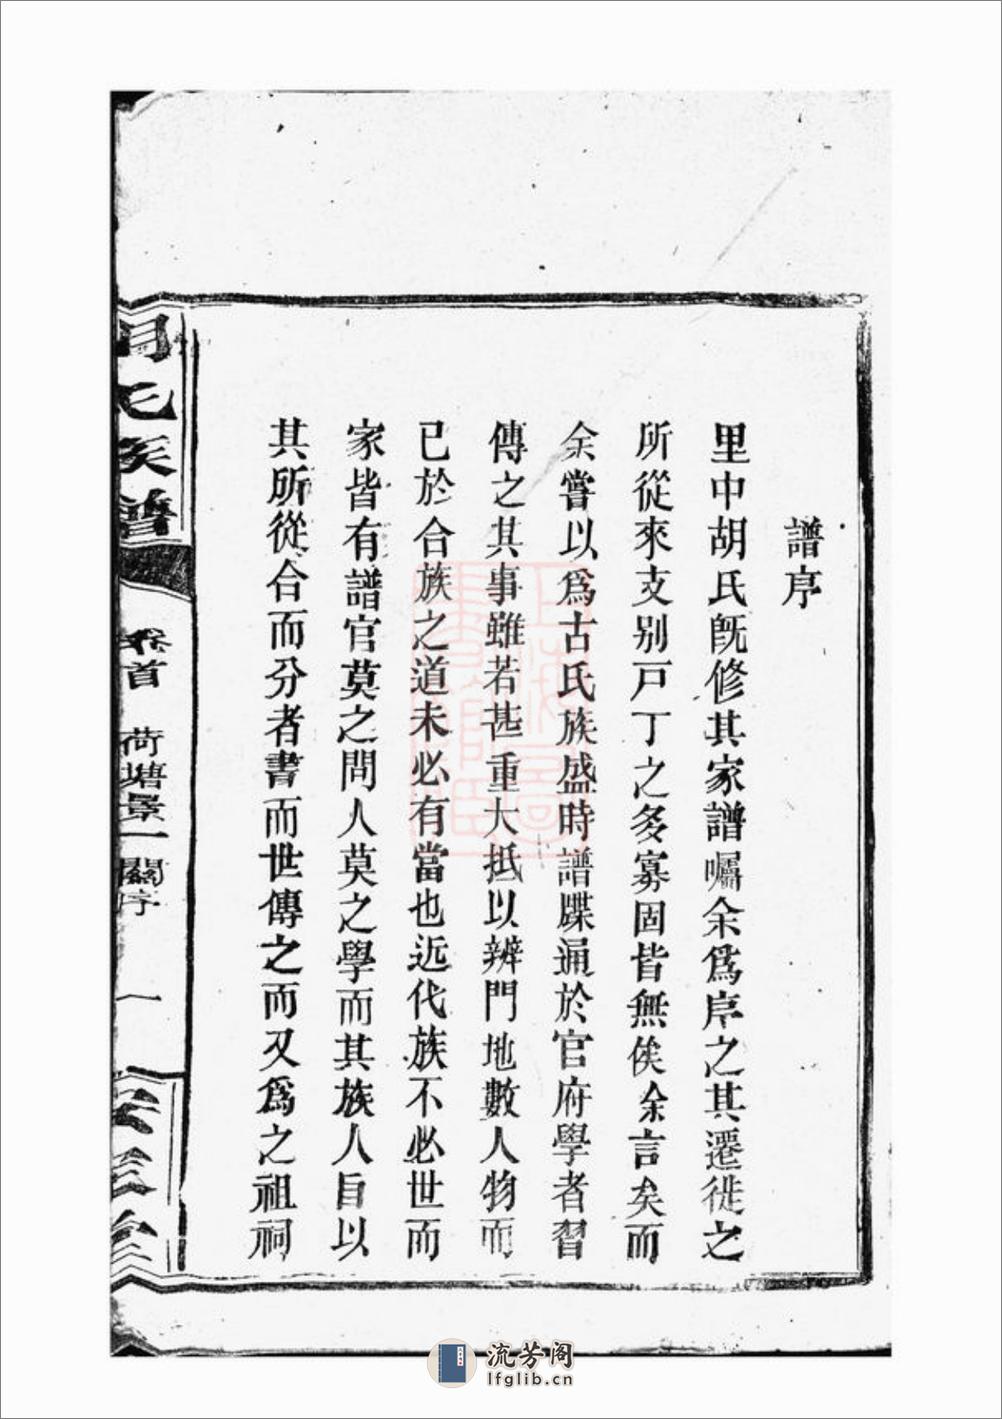 譜序
里中胡氏旣修其家譜囑余爲序之其遷徙之
所從來支别戸丁之多寡固皆無俟余言矣而
余嘗以爲古氏族盛時譜牒通於官府學者習
傳之其事雖若甚重大抵以辨門地數人物而
已於合族之道未必有當也近代族不必世而
家皆有譜官莫之問人莫之學而其族人自以
其所從合而分者書而世傳之而又爲之祖祠
氏族譜
卷首
荷塘景一關序
一
流芳阁
lfglib.cn